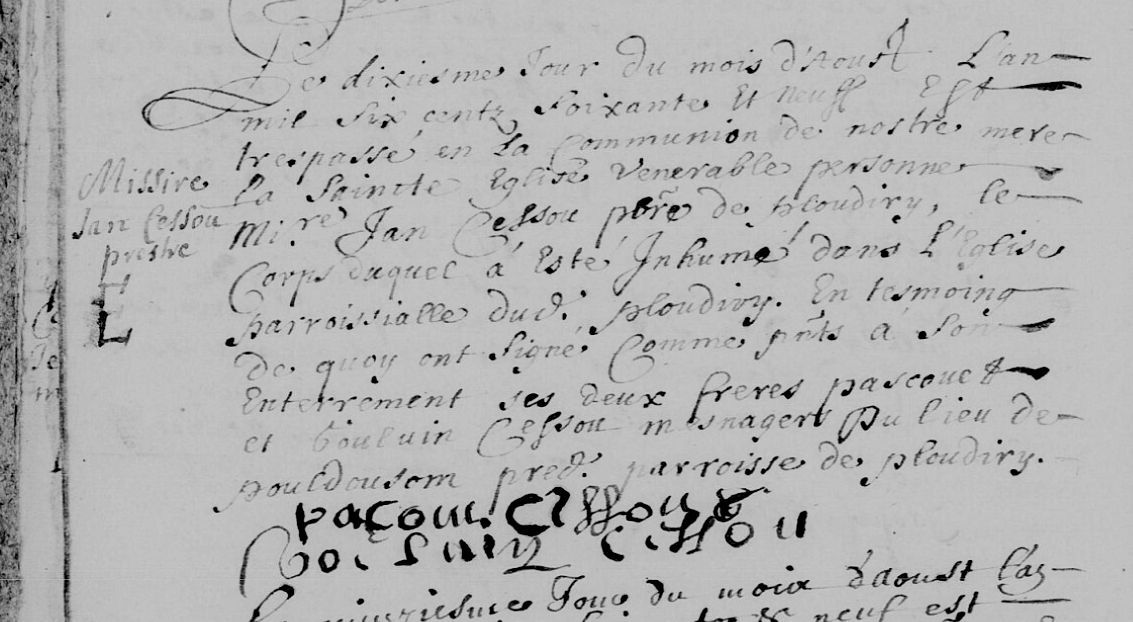 Le dixiesme Jour du mois d'Aoust L'an
mil six centz soixante et neuff Est
trespassé en La Communion de nostre mere
Missire
La Saincte Eglise venerable personne
Jan Cessou
Mi.re Jan Cessou pbre de ploudiry, le
prestre
Corps duquel á Esté Inhumé dans L'Eglise
parroissialle dud. ploudiry. En tesmoing
de quoy ont signé Comme pnts á son
Enterrement ses deux freres pascouet
et Goulvin Cessou mesnagers du lieu de
pouldousom pred. parroisse de ploudiry.
pacoue Cessou
Goulvin Cessou
Jour du moix daoust Lan
neuf est